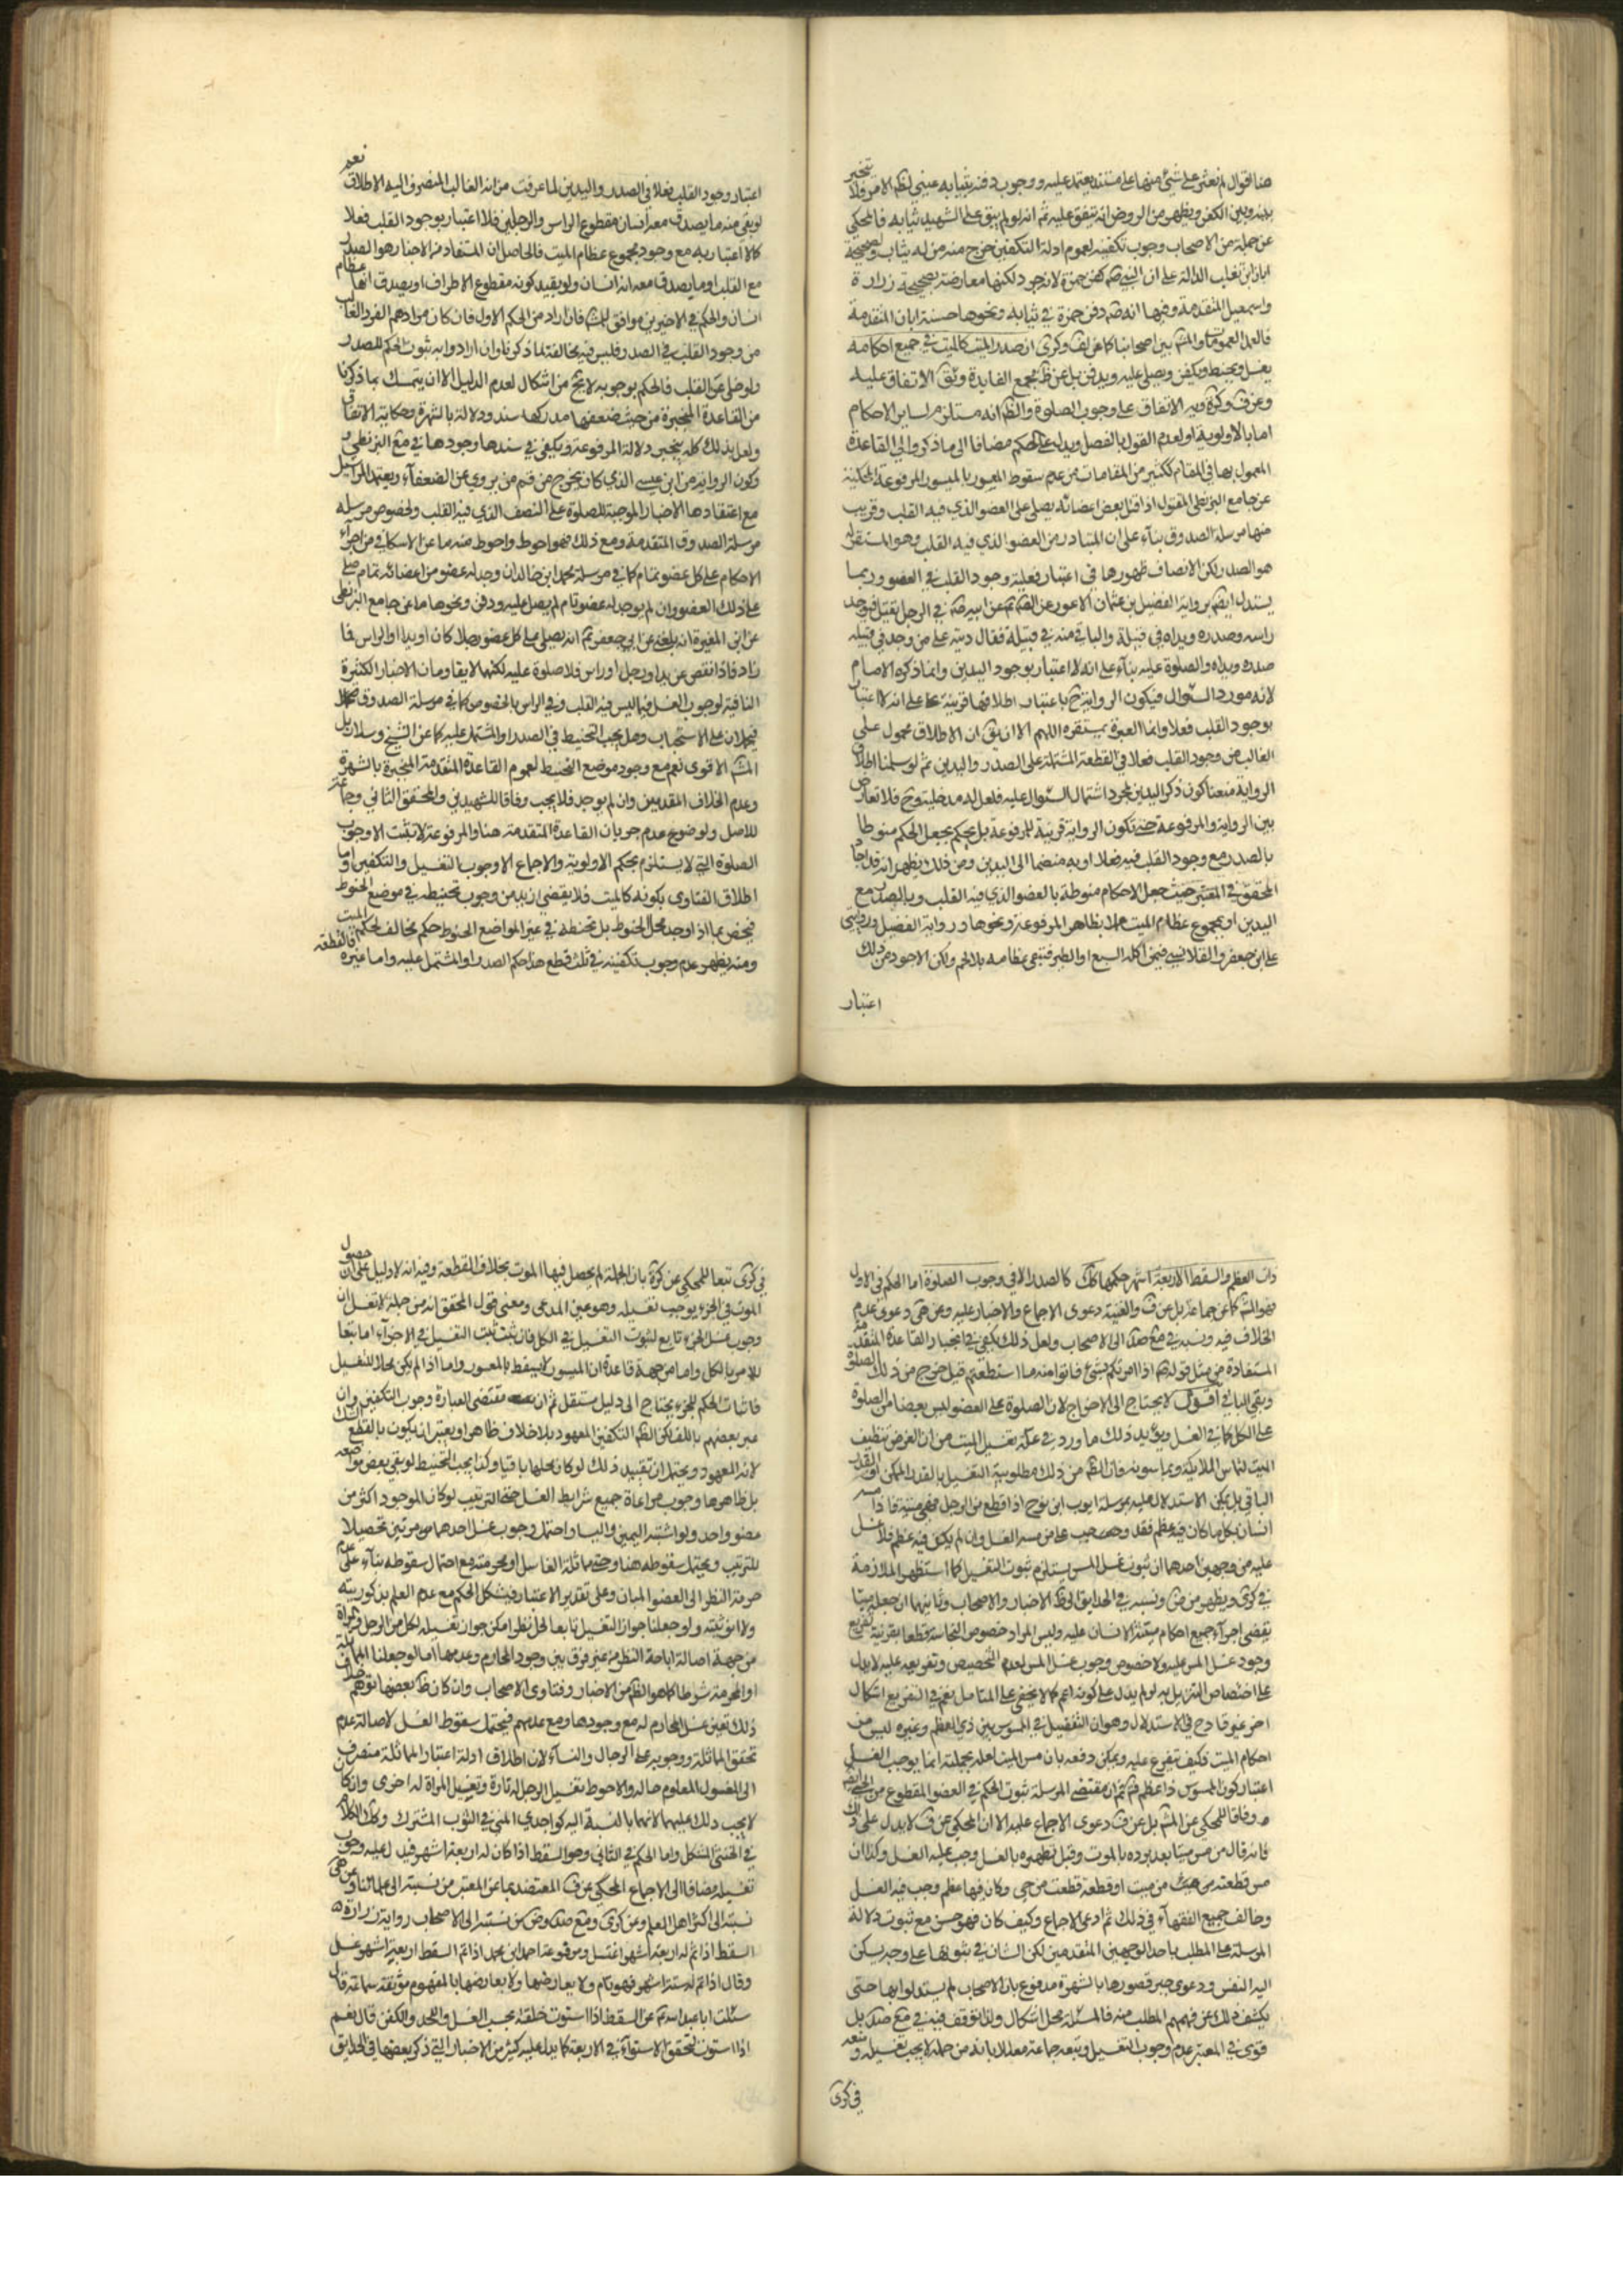 هنا قوال لم نعثر على شئ منها على مستند يعتمد عليه ووجوب دفنه بثيابه عيني لظ الامر فلا يتخير
بينه وبين الكفن ويظهر من الروض انه يتفق عليه ثم انه لو لم يبق على الشهيد ثيابه فالمحكى
عن جملة من الاصحاب وجوب تكفينه لعموم ادلة التكفين خرج منه من له ثياب وصحيحة
ابان ابن تغلب الدالة على ان النبي صه كفن حمزة لانه جرد لكنها معارضة بصحيحة زرارة
واسمعيل المتقدمة وفيها انه صه دفن حمزة في ثيابه ونحوها حسنة ابان المتقدمة
فالعمل العمومات والمشه بين اصحابنا كما عن لف وكرى ان صدر الميت كالميت في جميع احكامه
يغسل ويحنط ويكفن ويصلى عليه ويدفن بل عن ظ مجمع الفايدة وثق الاتفاق عليه
وعن ف وكرة وية الاتفاق على وجوب الصلوة والظ انه مستلزم لساير الاحكام
اما بالاولوية او لعدم القول بالفصل ويدل على الحكم مضافا الى ما ذكر والى القاعدة
المعمول بها في المقام ككثير من المقامات من عدم سقوط الميسور بالمعسور المرفوعة المحكية
عن جامع البزنطى المقتول اذا قتل بعض اعضائه يصلى على العضو الذي فيه القلب وقريب
منها مرسلة الصدوق بناء على ان المتبادر من العضو الذي فيه القلب وهو المستقر له
هو الصدر لكن الانصاف ظهورها في اعتبار فعلية وجود القلب في العضو وربما
يستدل ايضا برواية الفضيل بن عثمان الاعور عن الصم عن ابيه صه في الرجل يقتل فيوجد
راسه وصدره ويداه في قبيلة والباقي منه في قبيلة فقال ديته على من وجد في قبيلته
صدره ويداه والصلوة عليه بناء على انه لا اعتبار بوجود اليدين وانما ذكره الامام
لانه مورد السؤال فيكون الرواية ح باعتبار اطلاقها قرينة على انه لا اعتبار
بوجود القلب فعلا وانما العبرة بمستقره اللهم الا ان يق ان الاطلاق محمول على
الغالب من وجود القلب فعلا في القطعة المشتملة على الصدر واليدين ثم لو سلمنا اطلاق
الرواية منعنا كون ذكر اليدين لمجرد اشتمال السؤال عليه فلعل له مدخلية وح فلا تعارض
بين الرواية والمرفوعة حتى تكون الرواية قرينة للمرفوعة بل يحكم بجعل الحكم منوطا
بالصدر مع وجود القلب فيه فعلا او به منضما الى اليدين ومن ذلك يظهر انه قد اجاد
المحقق في المعتبر حيث جعل الاحكام منوطة بالعضو الذي فيه القلب وبالصدر مع
اليدين او بمجموع عظام الميت عملا بظاهر المرفوعة ونحوها ورواية الفضيل وروايتي
على ابن جعفر والقلانسي فيمن اكله السبع او الطير فتبقى عظامه بلا لحم ولكن الاجود من ذلك
اعتبار
اعتبار وجود القلب فعلا في الصدر واليدين لما عرفت من انه الغالب المنصرف اليه الاطلاق نعم
لو بقي منه ما يصدق معه انسان مقطوع الراس والرجلين فلا اعتبار بوجود القلب فعلا
كما لا اعتبار به مع وجود مجموع عظام الميت فالحاصل ان المستفاد من الاخبار هو الصدر
مع القلب او ما يصدق معه انه انسان ولو بقيد كونه مقطوع الاطراف او يصدق انها عظام
انسان والحكم في الاخيرين موافق للمشه فان اراد من الحكم الاول فان كان مرادهم الفرد الغالب
من وجود القلب في الصدر فليس فيه مخالفة لما ذكرنا وان ارادوا به ثبوت الحكم للصدر
ولو خلى عن القلب فالحكم بوجوبه لا يخ من اشكال لعدم الدليل الا ان يتمسك بما ذكرنا
من القاعدة المنجبرة من حيث ضعفها مدركها سند ودلالة بالشهرة وحكاية الاتفاق
ولعل بذلك كله ينجبر دلالة المرفوعة ويكفي في سندها وجودها في مع البزنطى و
وكون الرواية من ابن عيسى الذي كان يخرج من قم من يروي عن الضعفاء ويعتمد المراسيل
مع اعتقادها الاخبار الموجبة للصلوة على النصف الذي فيه القلب ولخصوص مرسله
مرسلة الصدوق المتقدمة ومع ذلك فهو احوط واحوط منه ما عن الاسكافي من اجراء
الاحكام على كل عضو تمام كما في مرسلة محمد ابن خالد ان وجد له عضو من اعضائه تمام صلى
على ذلك العضو وان لم يوجد له عضو تام لم يصل عليه ودفن ونحوها ما عن جامع البزنطى
عن ابن المغيرة انه بلغه عن ابي جعفر ثم انه يصلى على كل عضو رجلا كان او يدا او الراس فما
زاد فاذا نقص عن يد او رجل او راس فلا صلوة عليه لكنها لا يقاومان الاخبار الكثيرة
النافية لوجوب الغسل فيما ليس فيه القلب وفي الراس بالخصوص كما في مرسلة الصدوق
فيحملان على الاستحباب وهل يجب التحنيط في الصدر او المشتمل عليه كما عن الشيخ وسلار بل
المشه الاقوى نعم مع وجود موضع التحنيط لعموم القاعدة المتقدمة المنجبرة بالشهرة
وعدم الخلاف المقدمين وان لم يوجد فلا يجب وفاقا للشهيدين والمحقق الثاني وجماعة
للاصل ولوضوح عدم جريان القاعدة المتقدمة هنا والمرفوعة لا يثبت الا وجوب
الصلوة التي لا يستلزم بحكم الاولوية والاجماع الا وجوب التغسيل والتكفين واما
اطلاق الفتاوى بكونه كالميت فلا يقضي ازيد من وجوب تحنيطه في موضع الحنوط
فيختص بما اذا وجد محل الحنوط بل تحنيطه في غير المواضع الحنوط حكم مخالف لحكم الميت
ومنه يظهر عدم وجوب تكفينه في ثلث قطع هذا حكم الصدر او المشتمل عليه واما غيره فالقطعة
ذات العظم والسقط الاربعة اشهر حكمها كك كالصدر الا في وجوب الصلوة اما الحكم في الاول
فهو المشه كما عن جماعة بل عن ف والغنية دعوى الاجماع والاخبار عليه وعن هى دعوى عدم
الخلاف فيه ونسبه في مع صد الى الاصحاب ولعل ذلك يكفي في انجبار القاعدة المتقدمة
المستفادة من مثل قوله صه اذا امرتكم بشئ فاتوا منه ما استطعتم قيل خرج من ذلك الصلوة
وبقي الباقي اقول لا يحتاج الى الاخراج لان الصلوة على العضو ليس بعضا من الصلوة
على الكل كما في الغسل ويؤيد ذلك ما ورد في علة تغسيل الميت من ان الغرض تنظيف
الميت لتماس الملائكة ويماسونه فان الظ من ذلك مطلوبية التغسيل بالقدر الممكن والقدر
الباقي بل يمكن الاستدلال عليه بمرسلة ايوب ابن نوح اذا قطع من الرجل فهي ميتة فاذا مسه
انسان بكل ما كان فيه عظم فقد وجب على من مسه الغسل وان لم يكن فيه عظم فلا غسل
عليه من وجهين احدهما ان ثبوت غسل المس يستلزم ثبوت التغسيل كما استظهر الملازمة
في كرى ويظهر من ض ونسبه في الحدايق الى ظ الاخبار والاصحاب وثانيهما ان جعله ميتا
يقضى اجراء جميع احكام ميتة الانسان عليه وليس المراد خصوص النجاسة قطعا بقرينة تفريع
وجود غسل المس عليه ولا خصوص وجوب غسل المس لعدم التخصيص وتفريعه عليه لا يدل
على اختصاص التنزيل به لو لم يدل على كونه اعم كما لا يخفى على المتامل نعم في التفريع اشكال
اخر غير قادح في الاستدلال وهو ان التفصيل في الممسوس بين ذي العظم وغيره ليس من
احكام الميت فكيف تفرع عليه ويمكن دفعه بان مس الميت لعله بجملته انما يوجب الغسل
اعتبار كون الممسوس ذا عظم فت ثم ان مقتضى المرسلة ثبوت الحكم في العضو المقطوع من الحي ايضا
وفاقا للمحكى عن المشه بل عن ف دعوى الاجماع عليه الا ان المحكى عن ف لا يدل على ذلك
فانه قال من مس ميتا بعد برده بالموت وقبل تطهيره بالغسل وجب عليه الغسل وكذا ان
مس قطعة من ميت او قطعة قطعت من حي وكان فيها عظم وجب فيه الغسل
وخالف جميع الفقهاء في ذلك ثم ادعى الاجماع وكيف كان فهو حسن مع ثبوت دلالة
المرسلة على المطلب باحد الوجهين المتقدمين لكن الشان في ثبوتها على وجه يسكن
اليه النفس ودعوى جبر قصورها بالشهرة مدفوع بان الاصحاب لم يستدلوا بها حتى
يكشف ذلك عن فهمهم المطلب منه فالمسئلة محل اشكال ولذا توقف فيه في مع صد بل
قوى في المعتبر عدم وجوب التغسيل وتبعه جماعة معللا بانه من جملة لا يجب تغسيله و
في كرى
في كرى تبعا للمحكى عن كرة بان الجملة لم يحصل فيها الموت بخلاف القطعة وفيه انه لا دليل على ان حصول
الموت في الجزء يوجب تغسيله وهو عين المدعى ومعنى قول المحقق انه من جملة لا تغسل ان
وجوب غسل الجزء تابع لثبوت التغسيل في الكل فان ثبت ثبت التغسيل في الاجزاء اما تبعا
للامر بالكل واما من جهة قاعدة ان الميسور لا يسقط بالمعسور واما اذا لم يكن محلا للتغسيل
فاثبات الحكم للجزء يحتاج الى دليل مستقل ثم ان مقتضى العبارة وجوب التكفين وان
عبر بعضهم باللف لكن الظ التكفين المعهود بلا خلاف ظاهر او يعتبر ان يكون بالقطع الثلث
لانه المعهود ويحتمل ان تقييد ذلك لو كان محلها باقيا وكذا يجب التحنيط لو بقي بعض مواضعه
بل ظاهرها وجوب مراعاة جميع شرايط الغسل حتى الترتيب لو كان الموجود اكثر من
عضو واحد ولو اشتبه اليمين واليسار احتمل وجوب غسل احدهما مرتين تحصيلا
للترتيب ويحتمل سقوطه هنا وحتى مماثلة الغاسل او محرميته مع احتمال سقوطه بناء على عدم
حرمة النظر الى العضو المبان وعلى تقدير الاعتبار فيشكل الحكم مع عدم العلم بذكوريته
ولا انوثيته ولو جعلنا جواز التغسيل تابعا لحل نظر امكن جواز تغسيله لكل من الرجل والمراة
من جهة اصالة اباحة النظر من غير فرق بين وجود المحارم وعدمها اما لو جعلنا المماثلة
او المحرمية شرطا كما هو الظ من الاخبار وفتاوى الاصحاب وان كان ظ بعضها توهم خلاف
ذلك تعين غسل المحارم له مع وجودها ومع عدمهم فيحتمل سقوط الغسل لاصالة عدم
تحقق المماثلة ووجوبه على الرجال والنساء لان اطلاق ادلة اعتبار المماثلة منصرف
الى المغسول المعلوم حاله والاحوط تغسيل الرجل له تارة وتغسيل المراة له اخرى وان كان
لا يجب ذلك عليهما لانهما بالنسبة اليه كواجدي المني في الثوب المشترك وكك الكلام
في الخنثى المشكل واما الحكم في الثاني وهو السقط اذا كان له اربعة اشهر فيدل عليه وجوب
تغسيله مضافا الى الاجماع المحكى عن ف المعتضد بما عن المعتبر من نسبته الى علمائنا وعن هى
نسبته الى اكثر اهل العلم وعن كرى ومع صد وض من نسبته الى الاصحاب رواية زرارة
السقط اذا تم له اربعة اشهر اغتسل ومرفوعة احمد ابن محمد اذا تم السقط اربعة اشهر غسل
وقال اذا تم له ستة اشهر فهو تام ولا يعارضها ولا يعارضها بالمفهوم موثقة سماعة قال
سئلت ابا عبد الله ثم عن السقط اذا استوت خلقته يجب الغسل واللحد والكفن قال نعم
اذا استوت لتحقق الاستواء في الاربعة كما يدل عليه كثير من الاخبار التي ذكر بعضها في الحدايق